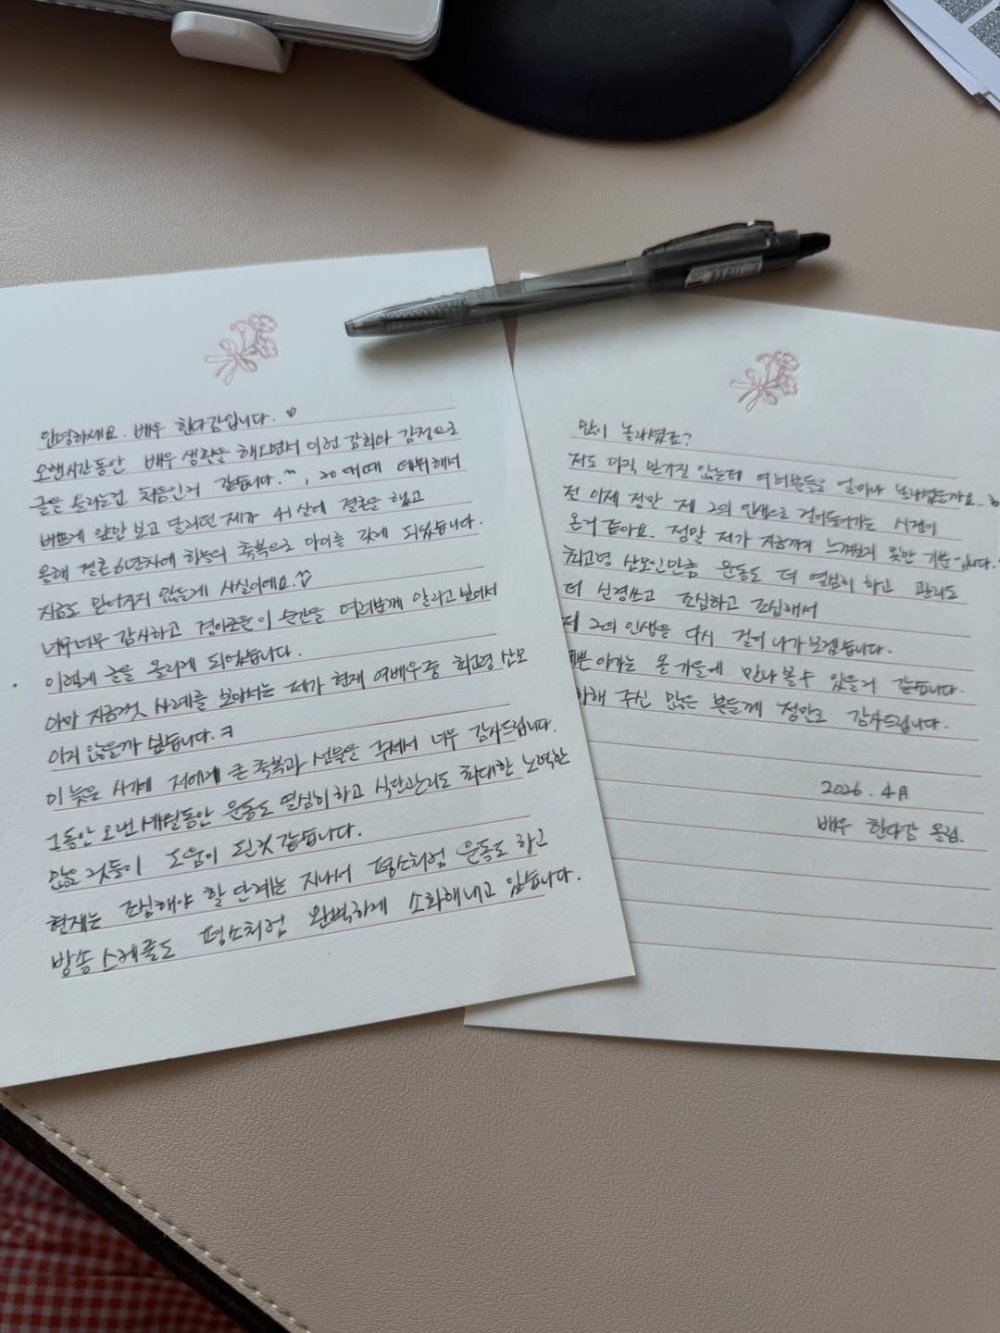 안녕하세요. 배우 한다감입니다. ♡
오랜시간동안 배우 생활을 해오면서 이런 감회와 감정으로
글을 올리는건 처음인거 같습니다.^^, 20대때 데뷔해서
바쁘게 앞만 보고 달리던 제가 41살에 결혼을 했고
올해 결혼 6년차에 하늘의 축복으로 아이를 갖게 되었습니다.
지금도 믿어지지 않는데 사실이에요.
너무너무 감사하고 경이로운 이 순간을 여러분께 알리고 보여서
이렇게 글을 올리게 되었습니다.
아마 지금껏 사례를 보아서는 제가 현재 여배우 중 최고령 산모
이지 않을까 싶습니다.ㅋ
이 늦은 시기에 저에게 큰 축복과 선물을 주셔서 너무 감사드립니다.
그동안 오랜 세월동안 운동도 열심히 하고 식단관리도 최대한 노력한
많은 것들이 도움이 된것 같습니다.
현재는 조심해야 할 단계는 지나서 평소처럼 운동도 하고
방송 스케줄도 평소처럼 완벽하게 소화해내고 있습니다.
많이 놀라셨죠?
저도 아직 믿기질 않는데 여러분들은 얼마나 놀라셨을까요.
전 이제 정말 제 2의 인생으로 걸어들어가는 시점이
온거 같아요. 정말 제가 지금까지 느껴보지 못한 기분입니다.
최고령 산모인만큼 운동도 더 열심히 하고 관리도
더 신경쓰고 조심하고 조심해서
제 2의 인생을 다시 걸어 나가보겠습니다.
쁜 아가는 올 가을에 만나볼수 있을거 같습니다.
하해 주신 많은 분들께 정말로 감사드립니다.
2026. 4月
배우 한다감 올림.